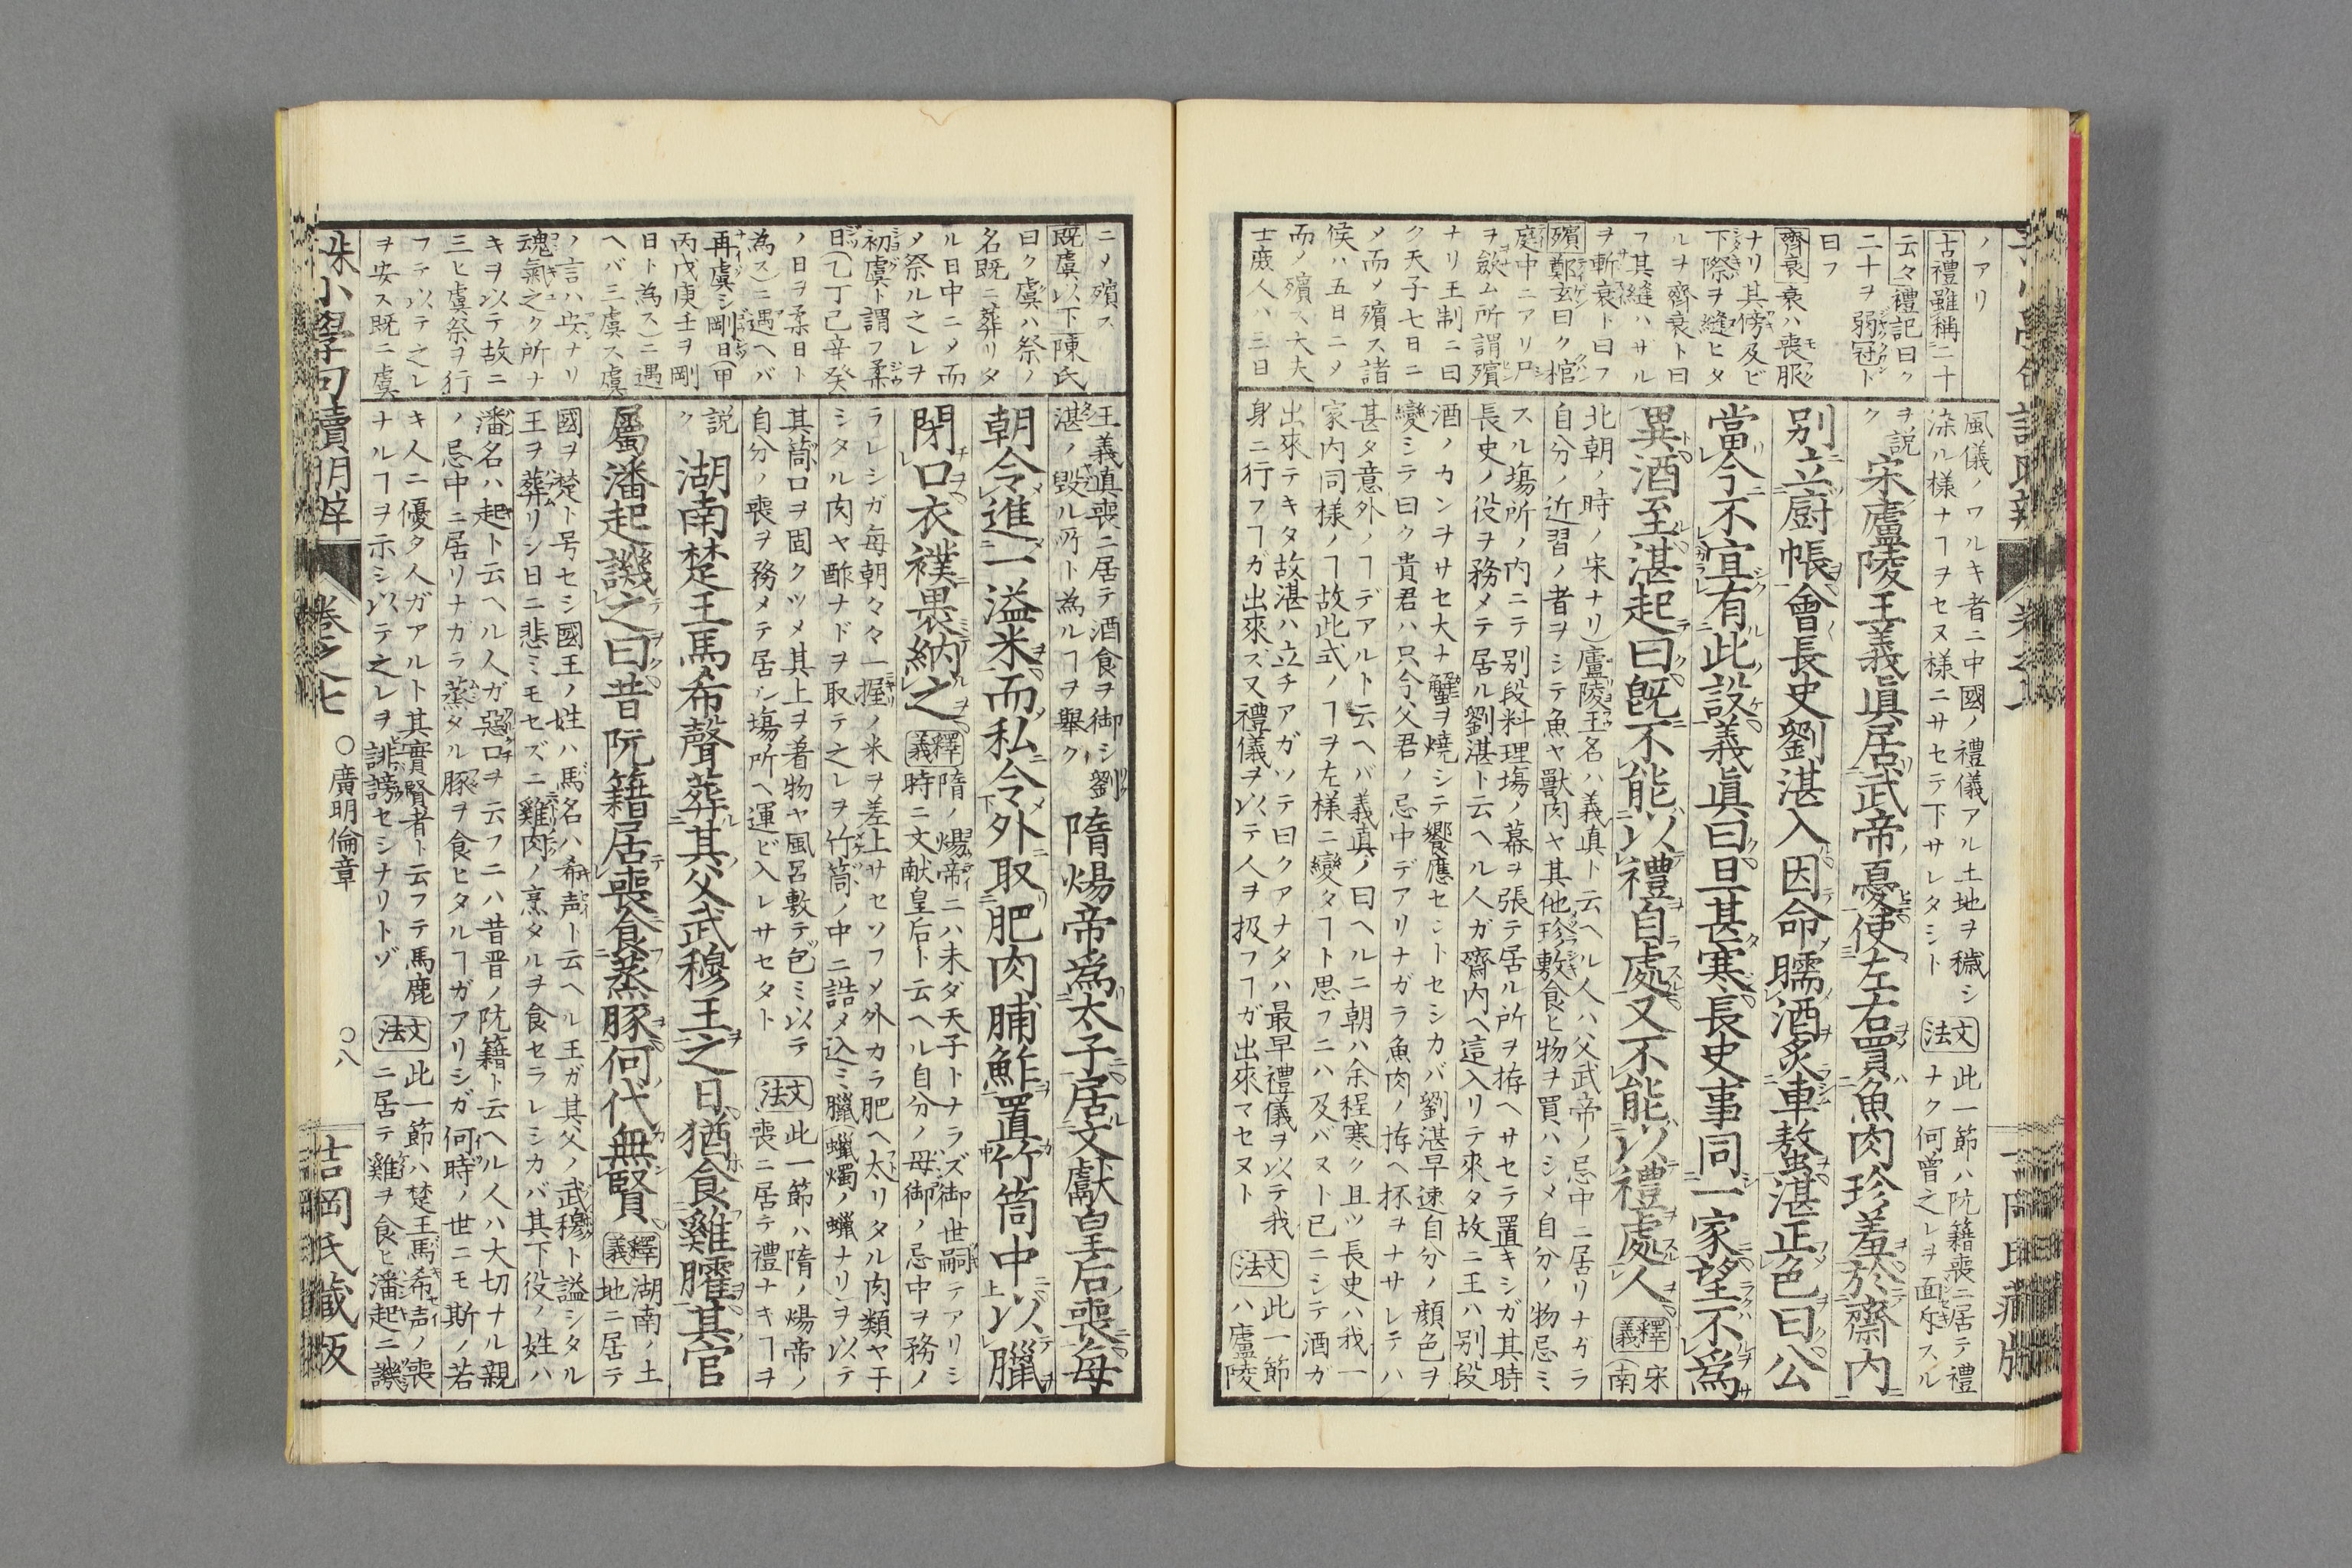 ノアリ
古禮雖稱二十
云々禮記曰ク
二十ヲ弱冠ト
曰フ
齊衰衰ハ喪服
ナリ其傍及ビ
下際ヲ縫ヒタ
ルヲ齊衰ト曰
フ其縫ハサル
ヲ斬衰ト曰フ
殯鄭玄曰ク棺
庭中ニアリ尸
ヲ斂ム所謂殯
ナリ王制ニ曰
ク天子七日ニ
メ而メ殯ス諸
侯ハ五日ニメ
而メ殯ス大夫
士庶人ハ三日
風儀ノワルキ者ニ中國ノ禮儀アル土地ヲ穢シ
染ル様ナヿヲセヌ様ニサセテ下サレタシト
文法
此一節ハ阮籍喪ニ居テ禮
ナク何曽之レヲ面斥スル
ヲ説
ク
宋廬陵王義眞居武帝憂使左右買魚肉珍羞於齋内
别立厨帳會長史劉湛入因命臑酒炙車螯湛正色曰公
當今不宜有此設義眞曰旦甚寒長史事同一家望不爲
異酒至湛起曰既不能以禮自處又不能以禮處人
釋義
宋
(南
北朝ノ時ノ宋ナリ)廬陵王名ハ義真ト云ヘル人ハ父武帝ノ忌中ニ居リナガラ
自分ノ近習ノ者ヲシテ魚ヤ獸肉ヤ其他珍敷食ヒ物ヲ買ハシメ自分ノ物忌ミ
スル塲所ノ内ニテ别段料理塲ノ幕ヲ張テ居ル所ヲ拵ヘサセテ置キシガ其時
長史ノ役ヲ務メテ居ル劉湛ト云ヘル人ガ齋内ヘ這入リテ來タ故ニ王ハ别段
酒ノカンヲサセ大ナ蟹ヲ燒シテ饗應セントセシカバ劉湛早速自分ノ顔色ヲ
變シテ曰ク貴君ハ只今父君ノ忌中デアリナガラ魚肉ノ拵ヘ杯ヲナサレテハ
甚タ意外ノヿデアルト云ヘバ義真ノ曰ヘルニ朝ハ余程寒ク且ツ長史ハ我一
家内同様ノヿ故此式ノヿヲ左様ニ變タヿト思フニハ及バヌト已ニシテ酒ガ
出來テキタ故湛ハ立チアガツテ曰クアナタハ最早禮儀ヲ以テ我
身ニ行フヿガ出來ズ又禮儀ヲ以テ人ヲ扱フヿガ出來マセヌト
文法
此一節
ハ廬陵
ニメ殯ス
既虞以下陳氏
曰ク虞ハ祭ノ
名既ニ葬リタ
ル日中ニメ而
メ祭ル之レヲ
初虞ト謂フ柔
日(乙丁己辛癸
ノ日ヲ柔日ト
為ス)ニ遇ヘバ
再虞シ剛日(甲
丙戊庚壬ヲ剛
日ト為ス)ニ遇
ヘバ三虞ス虞
ノ言ハ安ナリ
魂氣之ク所ナ
キヲ以テ故ニ
三ヒ虞祭ヲ行
フテ以テ之レ
ヲ安ス既ニ虞
王義眞喪ニ居テ酒食ヲ御シ劉
湛ノ毀ル所ト為ルヿヲ舉ク
隋煬帝爲太子居文獻皇后喪毎
朝令進一溢米而私令外取肥肉脯鮓置竹筒中以臘
閉口衣襆裹納之
釋義
隋ノ煬帝ニハ未ダ天子トナラズ御世嗣テアリシ
時ニ文献皇后ト云ヘル自分ノ母御ノ忌中ヲ務ノ
ラレシガ毎朝々々一握ノ米ヲ差上サセソフメ外カラ肥ヘ太リタル肉類ヤ干
シタル肉ヤ酢ナドヲ取テ之レヲ竹筒ノ中ニ詰メ込ミ臘(蠟燭ノ蠟ナリ)ヲ以テ
其筒口ヲ固クツメ其上ヲ着物ヤ風呂敷テ包ミ以テ
自分ノ喪ヲ務メテ居ル塲所ヘ運ビ入レサセタト
文法
此一節ハ隋ノ煬帝ノ
喪ニ居テ禮ナキヿヲ
説
ク
湖南楚王馬希聲葬其父武穆王之日猶食雞臛其官
屬潘起譏之曰昔阮籍居喪食蒸豚何代無賢
釋義
湖南ノ土
地ニ居テ
國ヲ楚ト号セシ國王ノ姓ハ馬名ハ希声ト云ヘル王ガ其父ノ武穆ト諡シタル
王ヲ葬リシ日ニ悲ミモセズニ雞肉ノ烹タルヲ食セラレシカバ其下役ノ姓ハ
潘名ハ起ト云ヘル人ガ惡口ヲ云フニハ昔晋ノ阮籍ト云ヘル人ハ大切ナル親
ノ忌中ニ居リナガラ蒸タル豚ヲ食ヒタルヿガアリシガ何時ノ世ニモ斯ノ若
キ人ニ優タ人ガアルト其實賢者ト云フテ馬鹿
ナルヿヲ示シ以テ之レヲ誹謗セシナリトゾ
文法
此一節ハ楚王馬希声ノ喪
ニ居テ雞ヲ食ヒ潘起ニ譏
朱小學句讀明辨
卷之七
○廣明倫章
○八
吉岡氏藏版